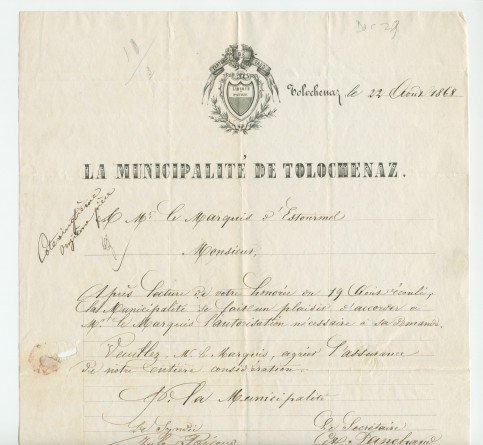 Tolochenaz le 22 Août 1868
LIBERTÉ
ET
PATRIE
LA MUNICIPALITÉ DE TOLOCHENAZ.
A Mr. le Marquis d'Estourmel
Monsieur,
Après lecture de votre honorée du 19 Août écoulé,
la Municipalité se fait un plaisir d'accorder à
Mr. le Marquis l'autorisation nécessaire à sa demande.
Veuillez, Mr. le Marquis, agréer l'assurance
de notre entière considération.
Pr. la Municipalité
Le Syndic
Le Secrétaire